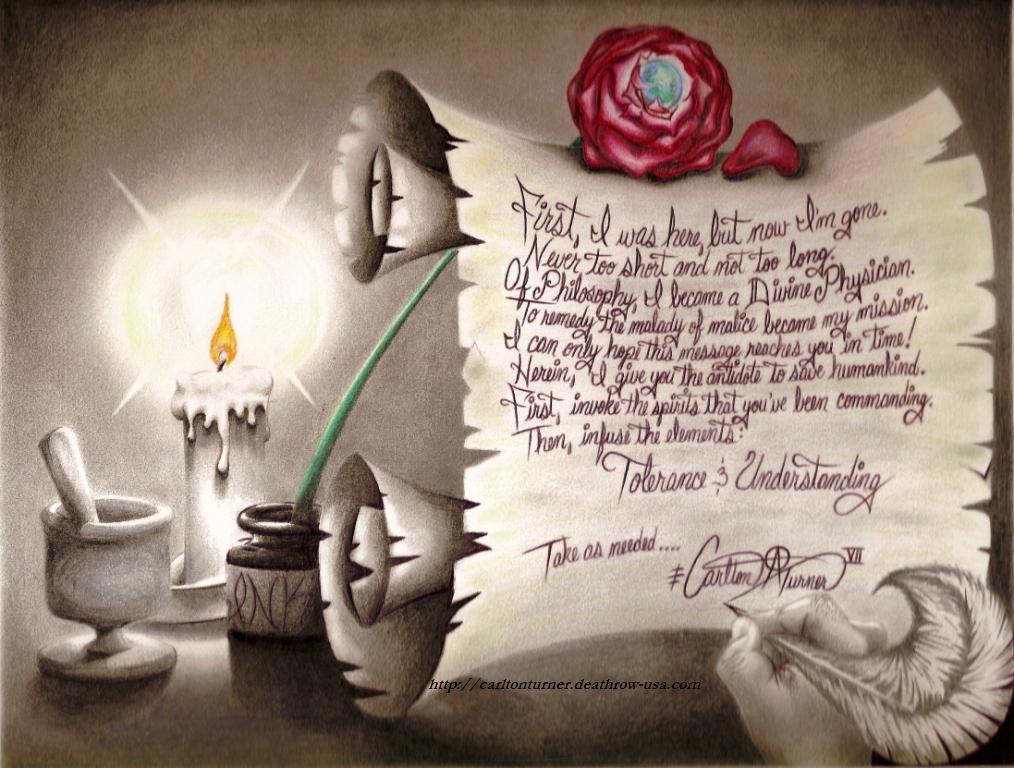 First, I was here, but now I'm gone.
Never too short and not too long.
Of Philosophy, I became a Divine Physician.
To remedy the malady of malice became my mission.
I can only hope this message reaches you in time!
Herein, I give you the antidote to save humankind.
First, invoke the spirits that you've been commanding.
Then, infuse the elements:
Tolerance & Understanding
Take as needed....
Carlton A Turner VII
INK
http://carltonturner.deathrow-usa.com